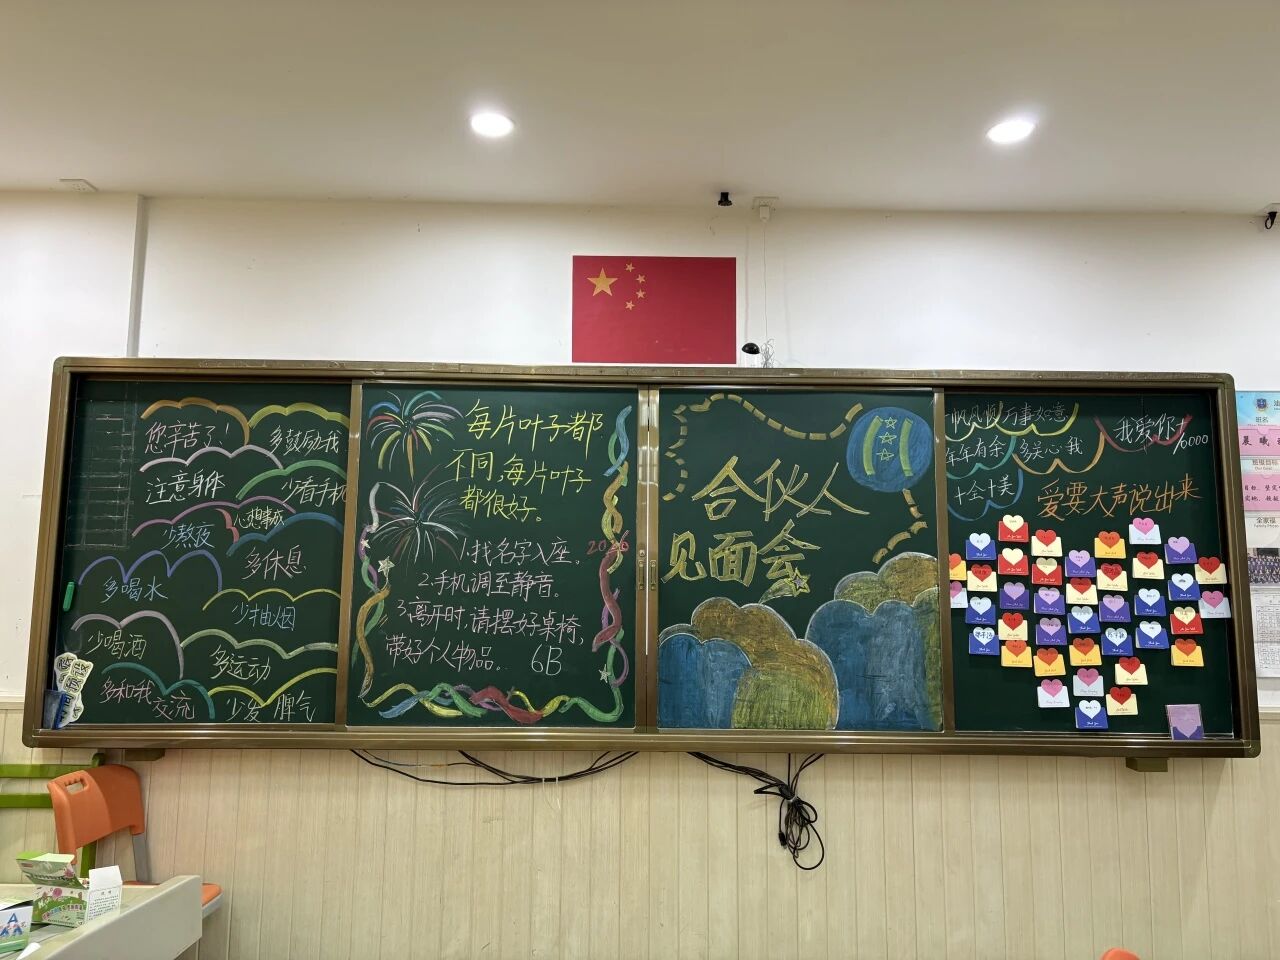 您辛苦了!
多鼓励我
注意身体
少看手机
少熬夜
心想事成
多喝水
多休息
少抽烟
少喝酒
多运动
多和我交流
少发脾气
每片叶子都
不同,每片叶子
都很好。
1.找名字入座。
2026
2.手机调至静音。
3.离开时,请摆好桌椅,
带好个人物品。
6B
合伙人
见面会
帆风顺
万事如意
年年有余
多关心我
十全十美
我爱你
6000
爱要大声说出来
班名
晨曦
班级目标
全家福
A